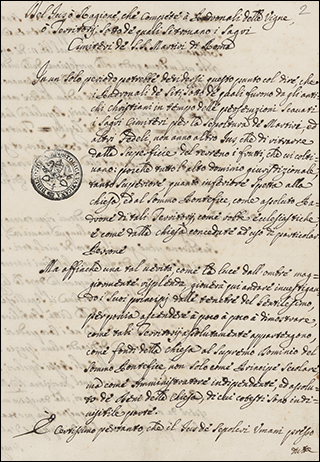 2
Del Jus, o Ragione, che compete à Padronali delle Vigne
o Territorj, sotto de quali si trovano i Sagri
Cimiterj de SS. Martiri di Roma
In un solo periodo potrebbe dedursi questo punto col dire, che i
Padronali de Siti, sotto de quali furono da gli anti-
chi christiani in tempo delle persecuzioni scavati
i Sagri Cimiterj per la sepoltura de Martiri, ed
altri Fedeli, non anno altro Jus, che di ritrarre
dalla superficie del terreno i frutti, che vi colti-
vano; poiche tutto l'altro dominio giurisdizionale,
tanto superiore, quanto inferiore spetta alla
chiesa, ed al Sommo Pontefice, come assoluto Pa-
drone di tali Territorj, come robbe Ecclesiastiche
e come dalla chiesa concedute ad uso di particolar
Persone
Ma affinche una tal verità come la luce dall'ombre mag-
giormente risplenda, gioverà qui andare investigan-
do i suoi principj dalle tenebre del Gentilesimo,
per poi ascendere à poco à poco a dimostrare,
come tali Territorij assolutamente appartengono,
come fondi della chiesa al Supremo Dominio del
Sommo Pontefice, non solo come Principe secolare,
ma come Amministratore indipendente, ed assolu-
to de Beni della chiesa di cui cotesti sono indi-
visibile parte.
E certissimo pertanto, che il Jus de Sepolcri Umani presso